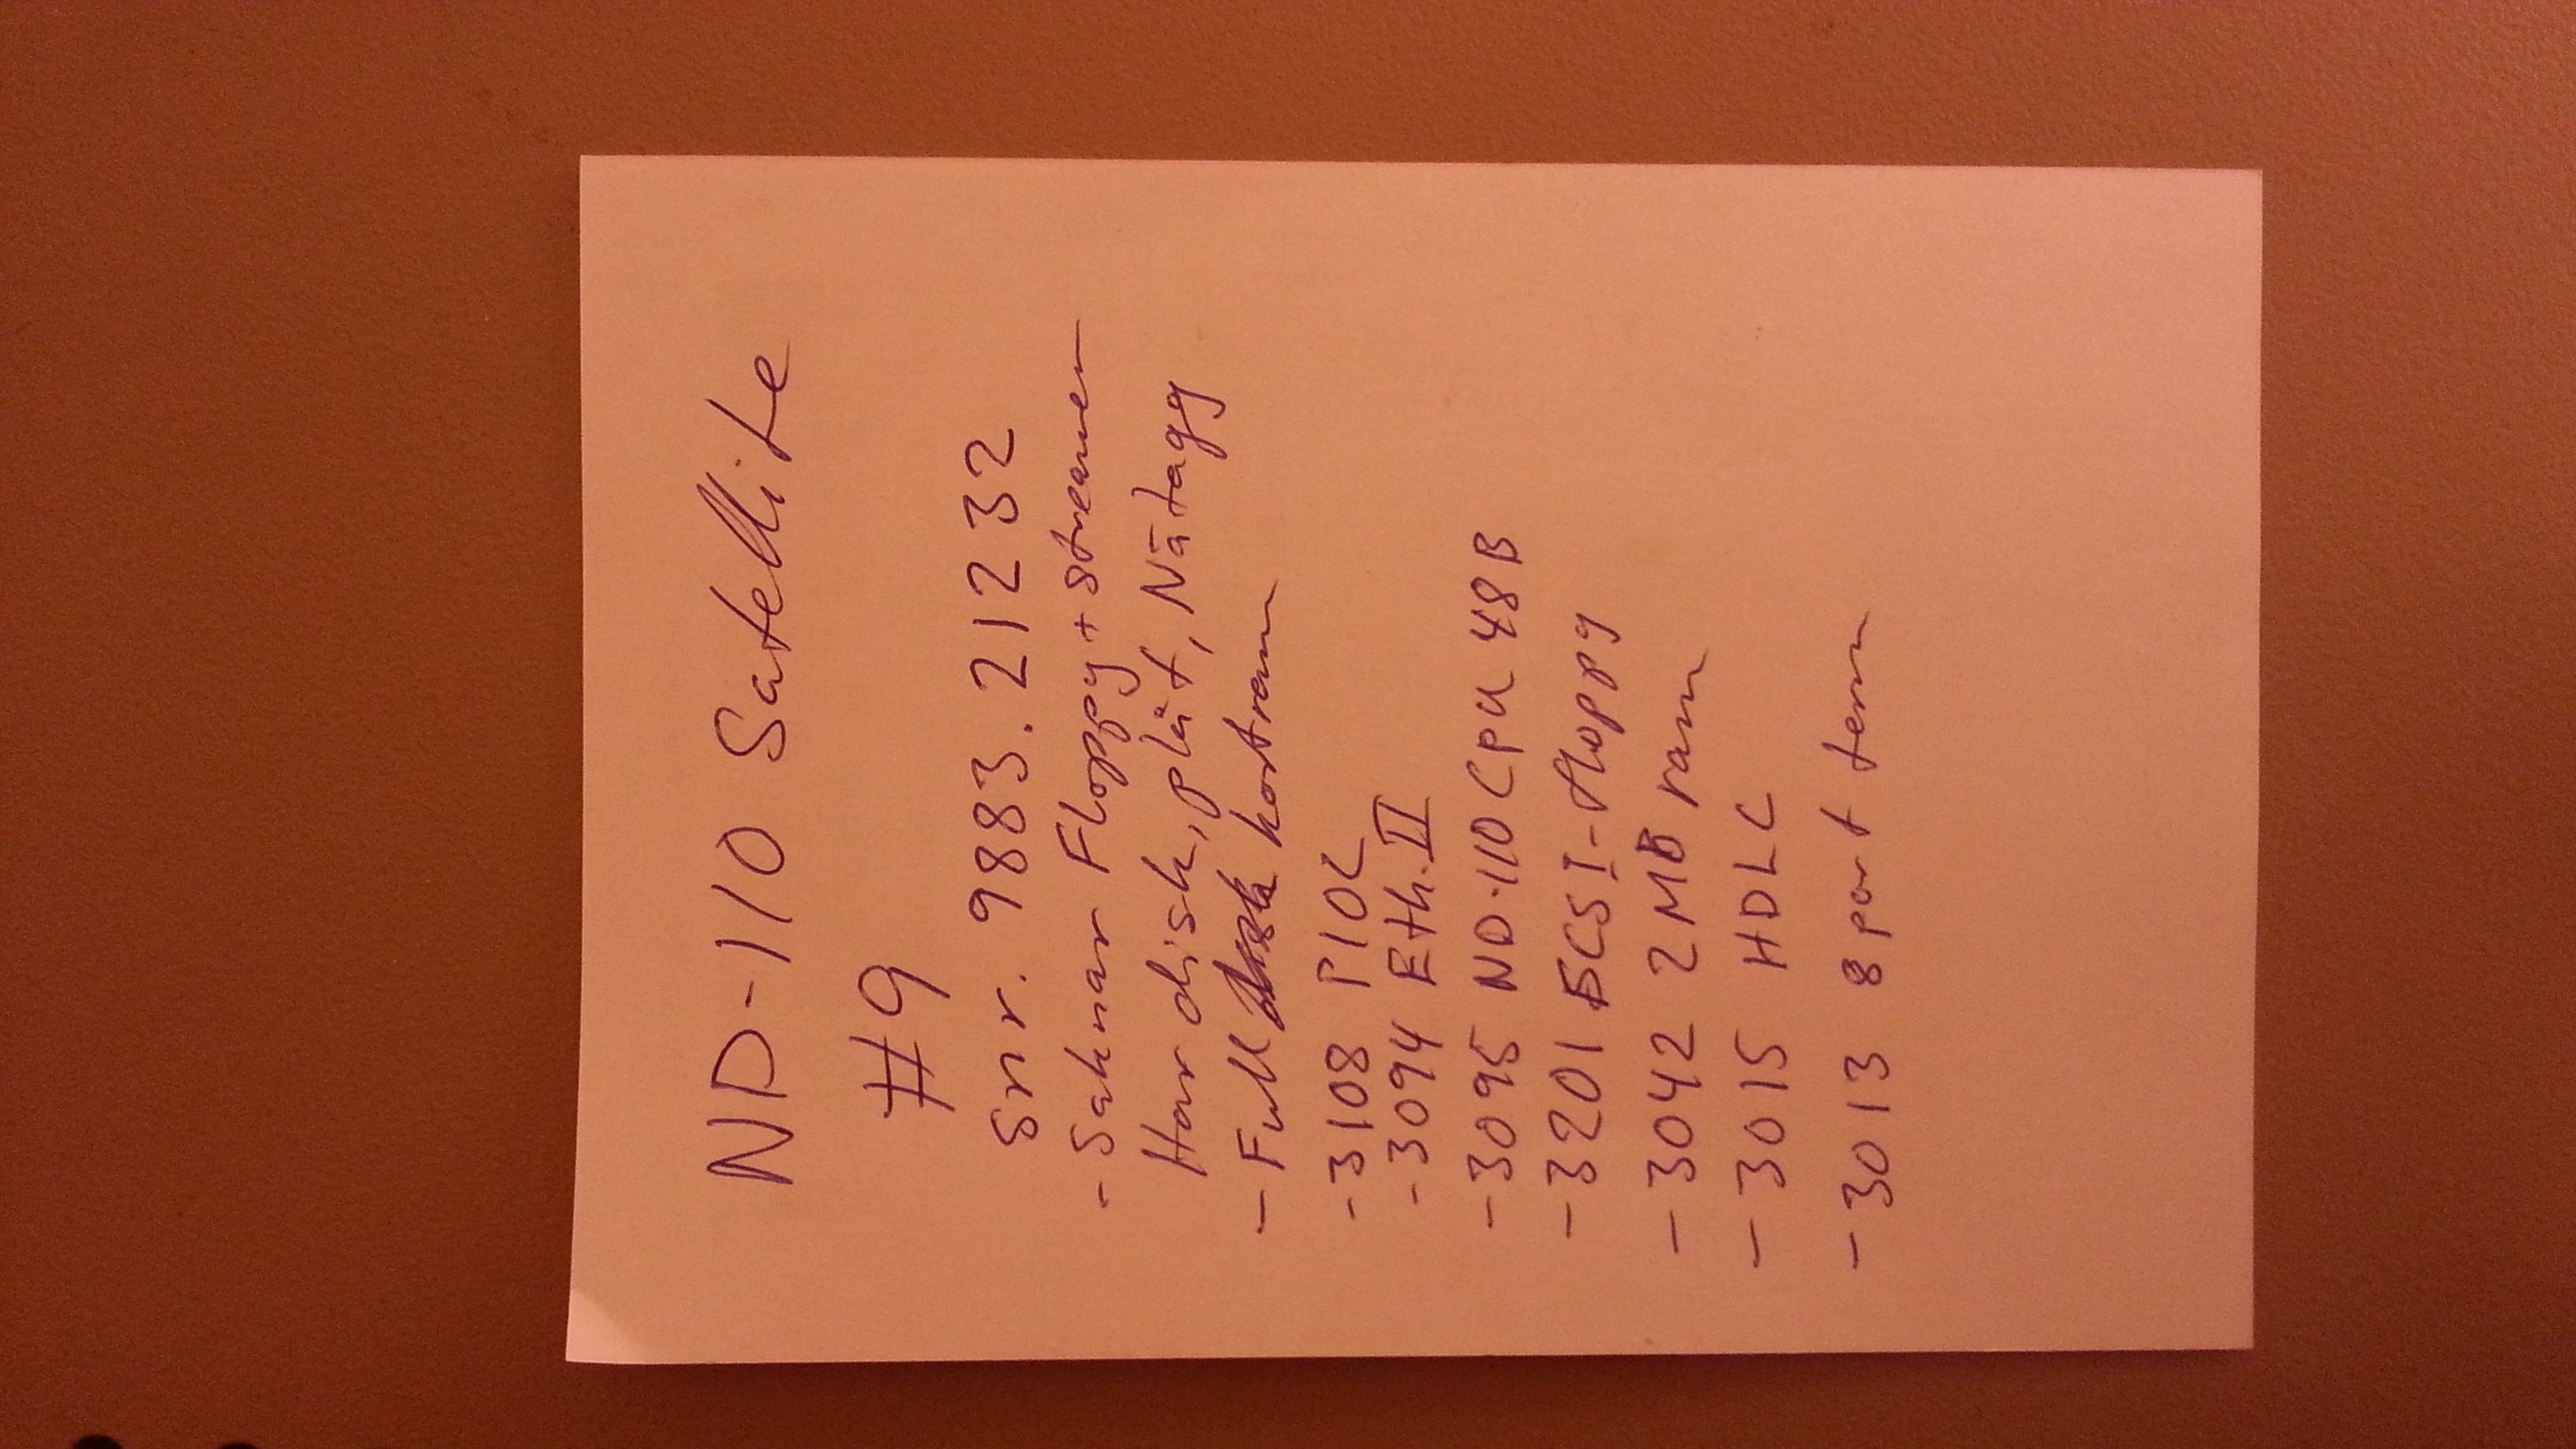 ND-110 Satellite
#9
Snr. 9883.21232
- Saknar Floppy + streamer
Har disk, plåt, Nätagg
- Full kortram
- 3108 PIOC
- 3094 Eth.II
- 3095 ND-110 Cpu 48B
- 3201 SCSI-floppy
- 3042 2MB ram
- 3015 HDLC
- 3013 8 port term